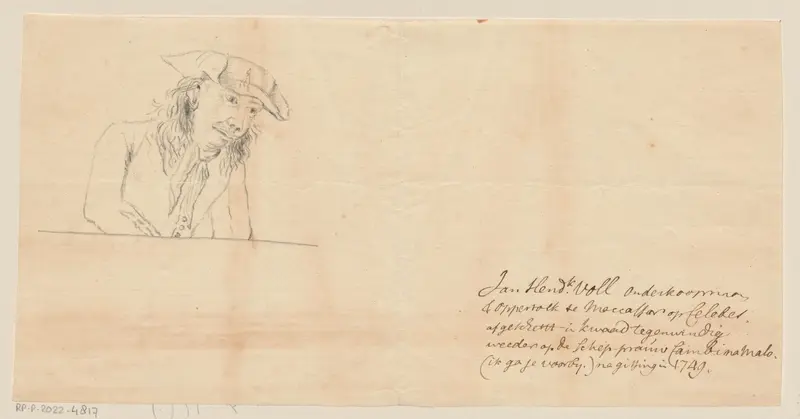 Jan Hendk. Voll onderkoopman
& oppertolk te Maccassar op Celebes.
afgeschetst in kwaad tegenwindig
weeder op de schep prauw Sambinamalo.
(ik ga je voorby.) na gissing in 1749.
RP-P-2022-4817